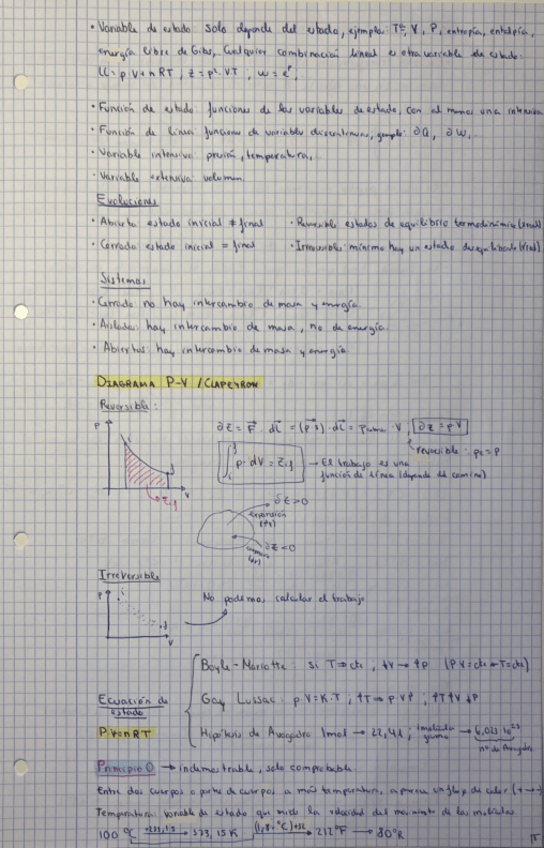 • Variable de estado solo depende del estado, ejemplo: Tª, V, P, entropía, entalpía,
energía libre de Gibs, Cualquier combinación lineal es otra variable de estado:
U = p·V + nRT, z = p²·VT, w = eᵖ,
• Función de estado: funciones de las variables de estado, con al menos una intensiva
• Función de línea: funciones de variables discontinuas, ejemplo: ∂Q, ∂W,
• Variable intensiva: presión, temperatura,
• Variable extensiva: volumen
Evoluciones
• Abierta estado inicial ≠ final • Reversible: estados de equilibrio termodinámico
• Cerrada estado inicial = final • Irreversible: mínimo hay un estado
Sistemas
• Cerrado: no hay intercambio de masa y energía.
• Aislados: hay intercambio de masa, no de energía.
• Abiertos: hay intercambio de masa y energía.
DIAGRAMA P-V / CLAPEYRON
Reversible:
P i f V
reversible: pe = p
∫ p·dV = → El trabajo es una
función de línea (depende del camino)
expansión
Irreversible
P i f V
No podemos calcular el trabajo
Boyle-Mariotte: si T = cte, ↓V → ↑P (PV = cte → T = cte)
Ecuación de
estado
Gay Lussac: p·V = K·T, ↑T → p·V↑, ↑T↑V↓P
P·V = nRT
Hipótesis de Avogadro 1mol → 22,4L; → 6,023·10²³
nº de Avogadro
Principio 0 → indemostrable, solo comprobable.
Entre dos cuerpos o partes de cuerpos a más temperatura, aparece un flujo de calor (+ → -)
Temperatura: variable de estado que mide la velocidad del movimiento de las moléculas
100 ºC +273,15 → 373,15 K (1,8·ºC)+32 → 212ºF → 80ºR